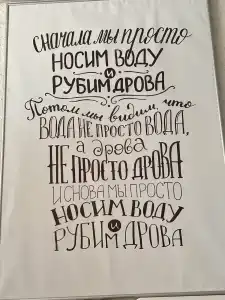 сначала мы просто
носим воду
и
рубим дрова
Потом мы видим, что
вода не просто вода,
а дрова
не просто дрова
и снова мы просто
носим воду
и
рубим дрова